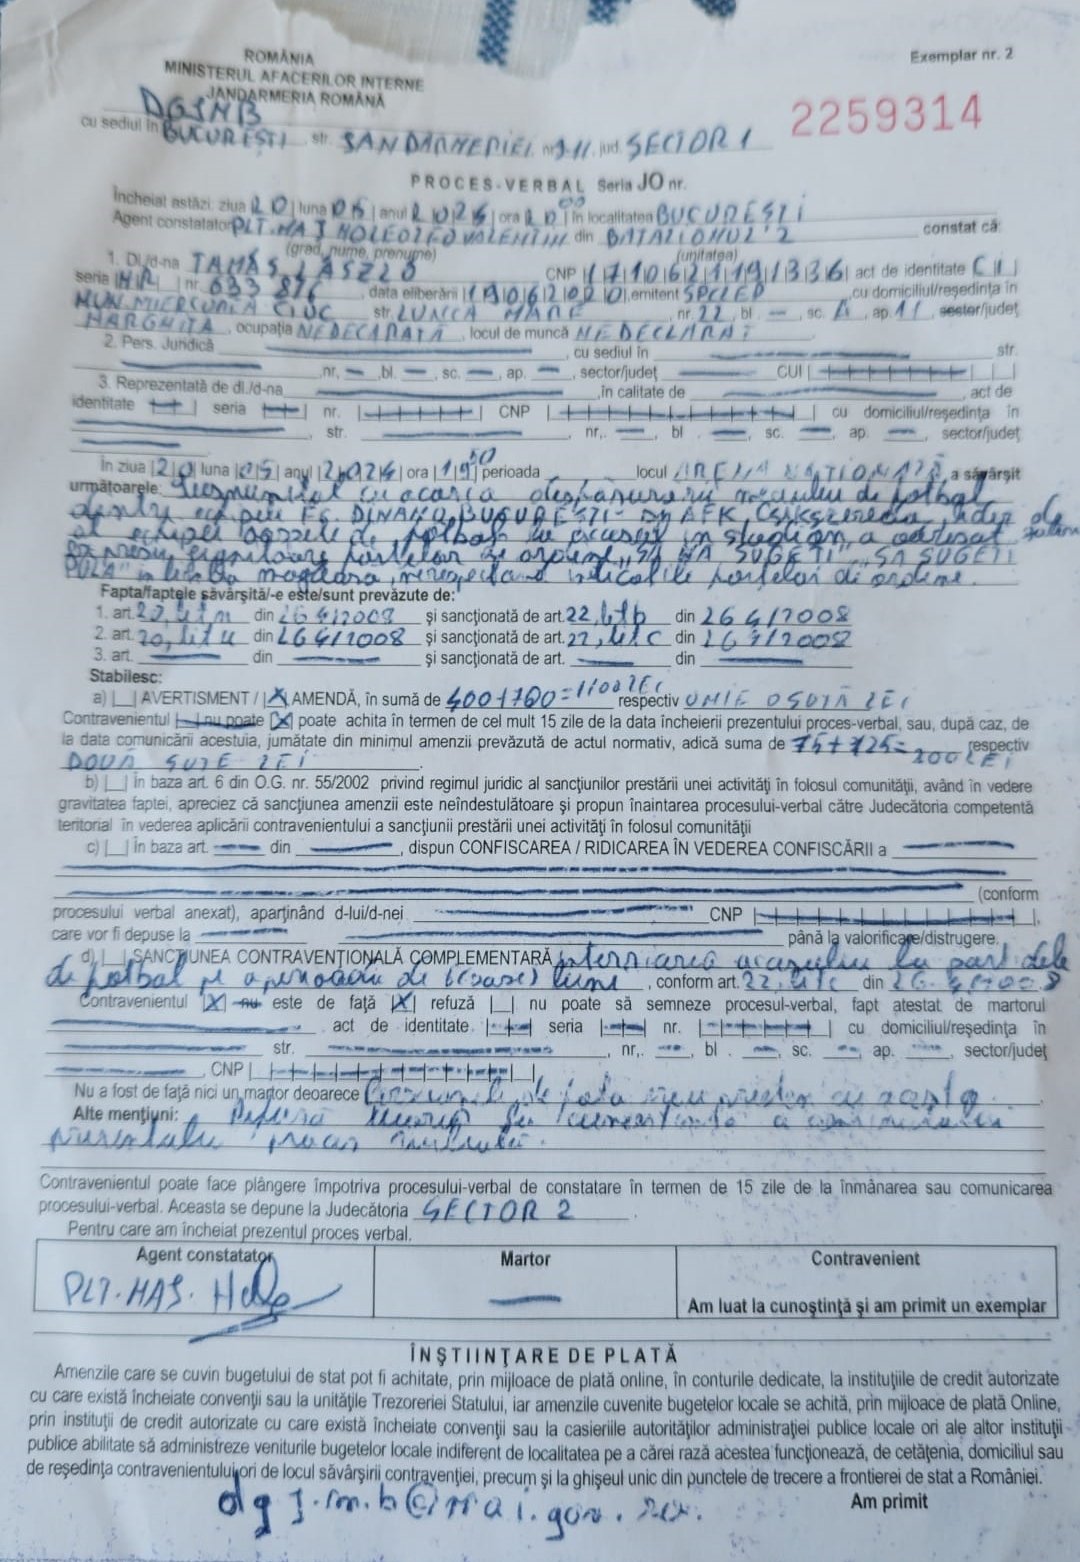 ROMÂNIA
MINISTERUL AFACERILOR INTERNE
JANDARMERIA ROMÂNĂ
Exemplar nr. 2
DGJMB
2259314
cu sediul în BUCUREȘTI str. JANDARMERIEI nr 9-11 jud. SECTOR 1
PROCES-VERBAL Seria JO nr.
Încheiat astăzi, ziua 20 luna 05 anul 2024 ora 20 00 în localitatea BUCUREȘTI
Agent constatator PLT.MAJ VALENTIN din BATALIONUL 2 constat că:
(grad, nume, prenume) (unitatea)
1. Dl./d-na TAMÁS LÁSZLÓ CNP act de identitate CI
seria HR nr. 633 876, data eliberării emitent SPCLEP, cu domiciliul/reședința în
MUN. MIERCUREA CIUC str. LUNCA MARE, nr. 22, bl. —, sc. A, ap. 11, sector/județ
HARGHITA, ocupația NEDECLARATĂ, locul de muncă NEDECLARAT
2. Pers. Juridică, cu sediul în str.
nr. — bl. —, sc. —, ap. —, sector/județ CUI
3. Reprezentată de dl./d-na, în calitate de, act de
identitate seria nr. CNP cu domiciliul/reședința în
str. nr,. —, bl —, sc. —, ap. —, sector/județ
În ziua 20 luna 05 anul 2024 ora 19 perioada locul ARENA NAȚIONALĂ, a săvârșit
următoarele: cu ocazia desfășurării meciului de fotbal
dintre echipele FC. DINAMO BUCUREȘTI - AFK Csikszereda, lider de
al echipei oaspete de fotbal, cu acces in stadion, a adresat
expresii jignitoare forțelor de ordine, "SĂ MĂ SUGEȚI", "SĂ SUGEȚI
PULA" in limba maghiara, nerespectand indicatiile forțelor de ordine.
Fapta/faptele săvârșită/-e este/sunt prevăzute de:
1. art. 20, lit m din L6 4/2008 și sancționată de art. 22, lit b din L6 4/2008
2. art. 20, lit u din L6 4/2008 și sancționată de art. 22, lit c din L6 4/2008
3. art. — din — și sancționată de art. — din —
Stabilesc:
a) |_| AVERTISMENT / |X| AMENDĂ, în sumă de 400+700=1100 LEI respectiv UNA MIE O SUTĂ LEI
Contravenientul |_| nu poate |X| poate achita în termen de cel mult 15 zile de la data încheierii prezentului proces-verbal, sau, după caz, de
la data comunicării acestuia, jumătate din minimul amenzii prevăzută de actul normativ, adică suma de 75+125=200 LEI respectiv
DOUĂ SUTE LEI.
b) |_| În baza art. 6 din O.G. nr. 55/2002 privind regimul juridic al sancțiunilor prestării unei activități în folosul comunității, având în vedere
gravitatea faptei, apreciez că sancțiunea amenzii este neîndestulătoare și propun înaintarea procesului-verbal către Judecătoria competentă
teritorial în vederea aplicării contravenientului a sancțiunii prestării unei activități în folosul comunității
c) |_| În baza art. — din —, dispun CONFISCAREA / RIDICAREA ÎN VEDEREA CONFISCĂRII a
(conform
procesului verbal anexat), aparținând d-lui/d-nei CNP
care vor fi depuse la până la valorificare/distrugere.
d) |_| SANCȚIUNEA CONTRAVENȚIONALĂ COMPLEMENTARĂ interzicerea accesului la partidele
de fotbal pe o perioadă de 6(șase) luni, conform art. 22, lit c din L6. 4/2008
Contravenientul |X| nu este de față |X| refuză |_| nu poate să semneze procesul-verbal, fapt atestat de martorul
act de identitate seria nr. cu domiciliul/reședința în
str. nr,. —, bl. —, sc. —, ap. —, sector/județ
, CNP
Nu a fost de față nici un martor deoarece
Alte mențiuni:
prezentului proces verbal.
Contravenientul poate face plângere împotriva procesului-verbal de constatare în termen de 15 zile de la înmânarea sau comunicarea
procesului-verbal. Aceasta se depune la Judecătoria SECTOR 2.
Pentru care am încheiat prezentul proces verbal.
Agent constatator Martor Contravenient
PLT.MAJ.
Am luat la cunoștință și am primit un exemplar
ÎNȘTIINȚARE DE PLATĂ
Amenzile care se cuvin bugetului de stat pot fi achitate, prin mijloace de plată online, în conturile dedicate, la instituțiile de credit autorizate
cu care există încheiate convenții sau la unitățile Trezoreriei Statului, iar amenzile cuvenite bugetelor locale se achită, prin mijloace de plată Online,
prin instituții de credit autorizate cu care există încheiate convenții sau la casieriile autorităților administrației publice locale ori ale altor instituții
publice abilitate să administreze veniturile bugetelor locale indiferent de localitatea pe a cărei rază acestea funcționează, de cetățenia, domiciliul sau
de reședința contravenientului ori de locul săvârșirii contravenției, precum și la ghișeul unic din punctele de trecere a frontierei de stat a României.
Am primit
dgj.m.b@mai.gov.ro.